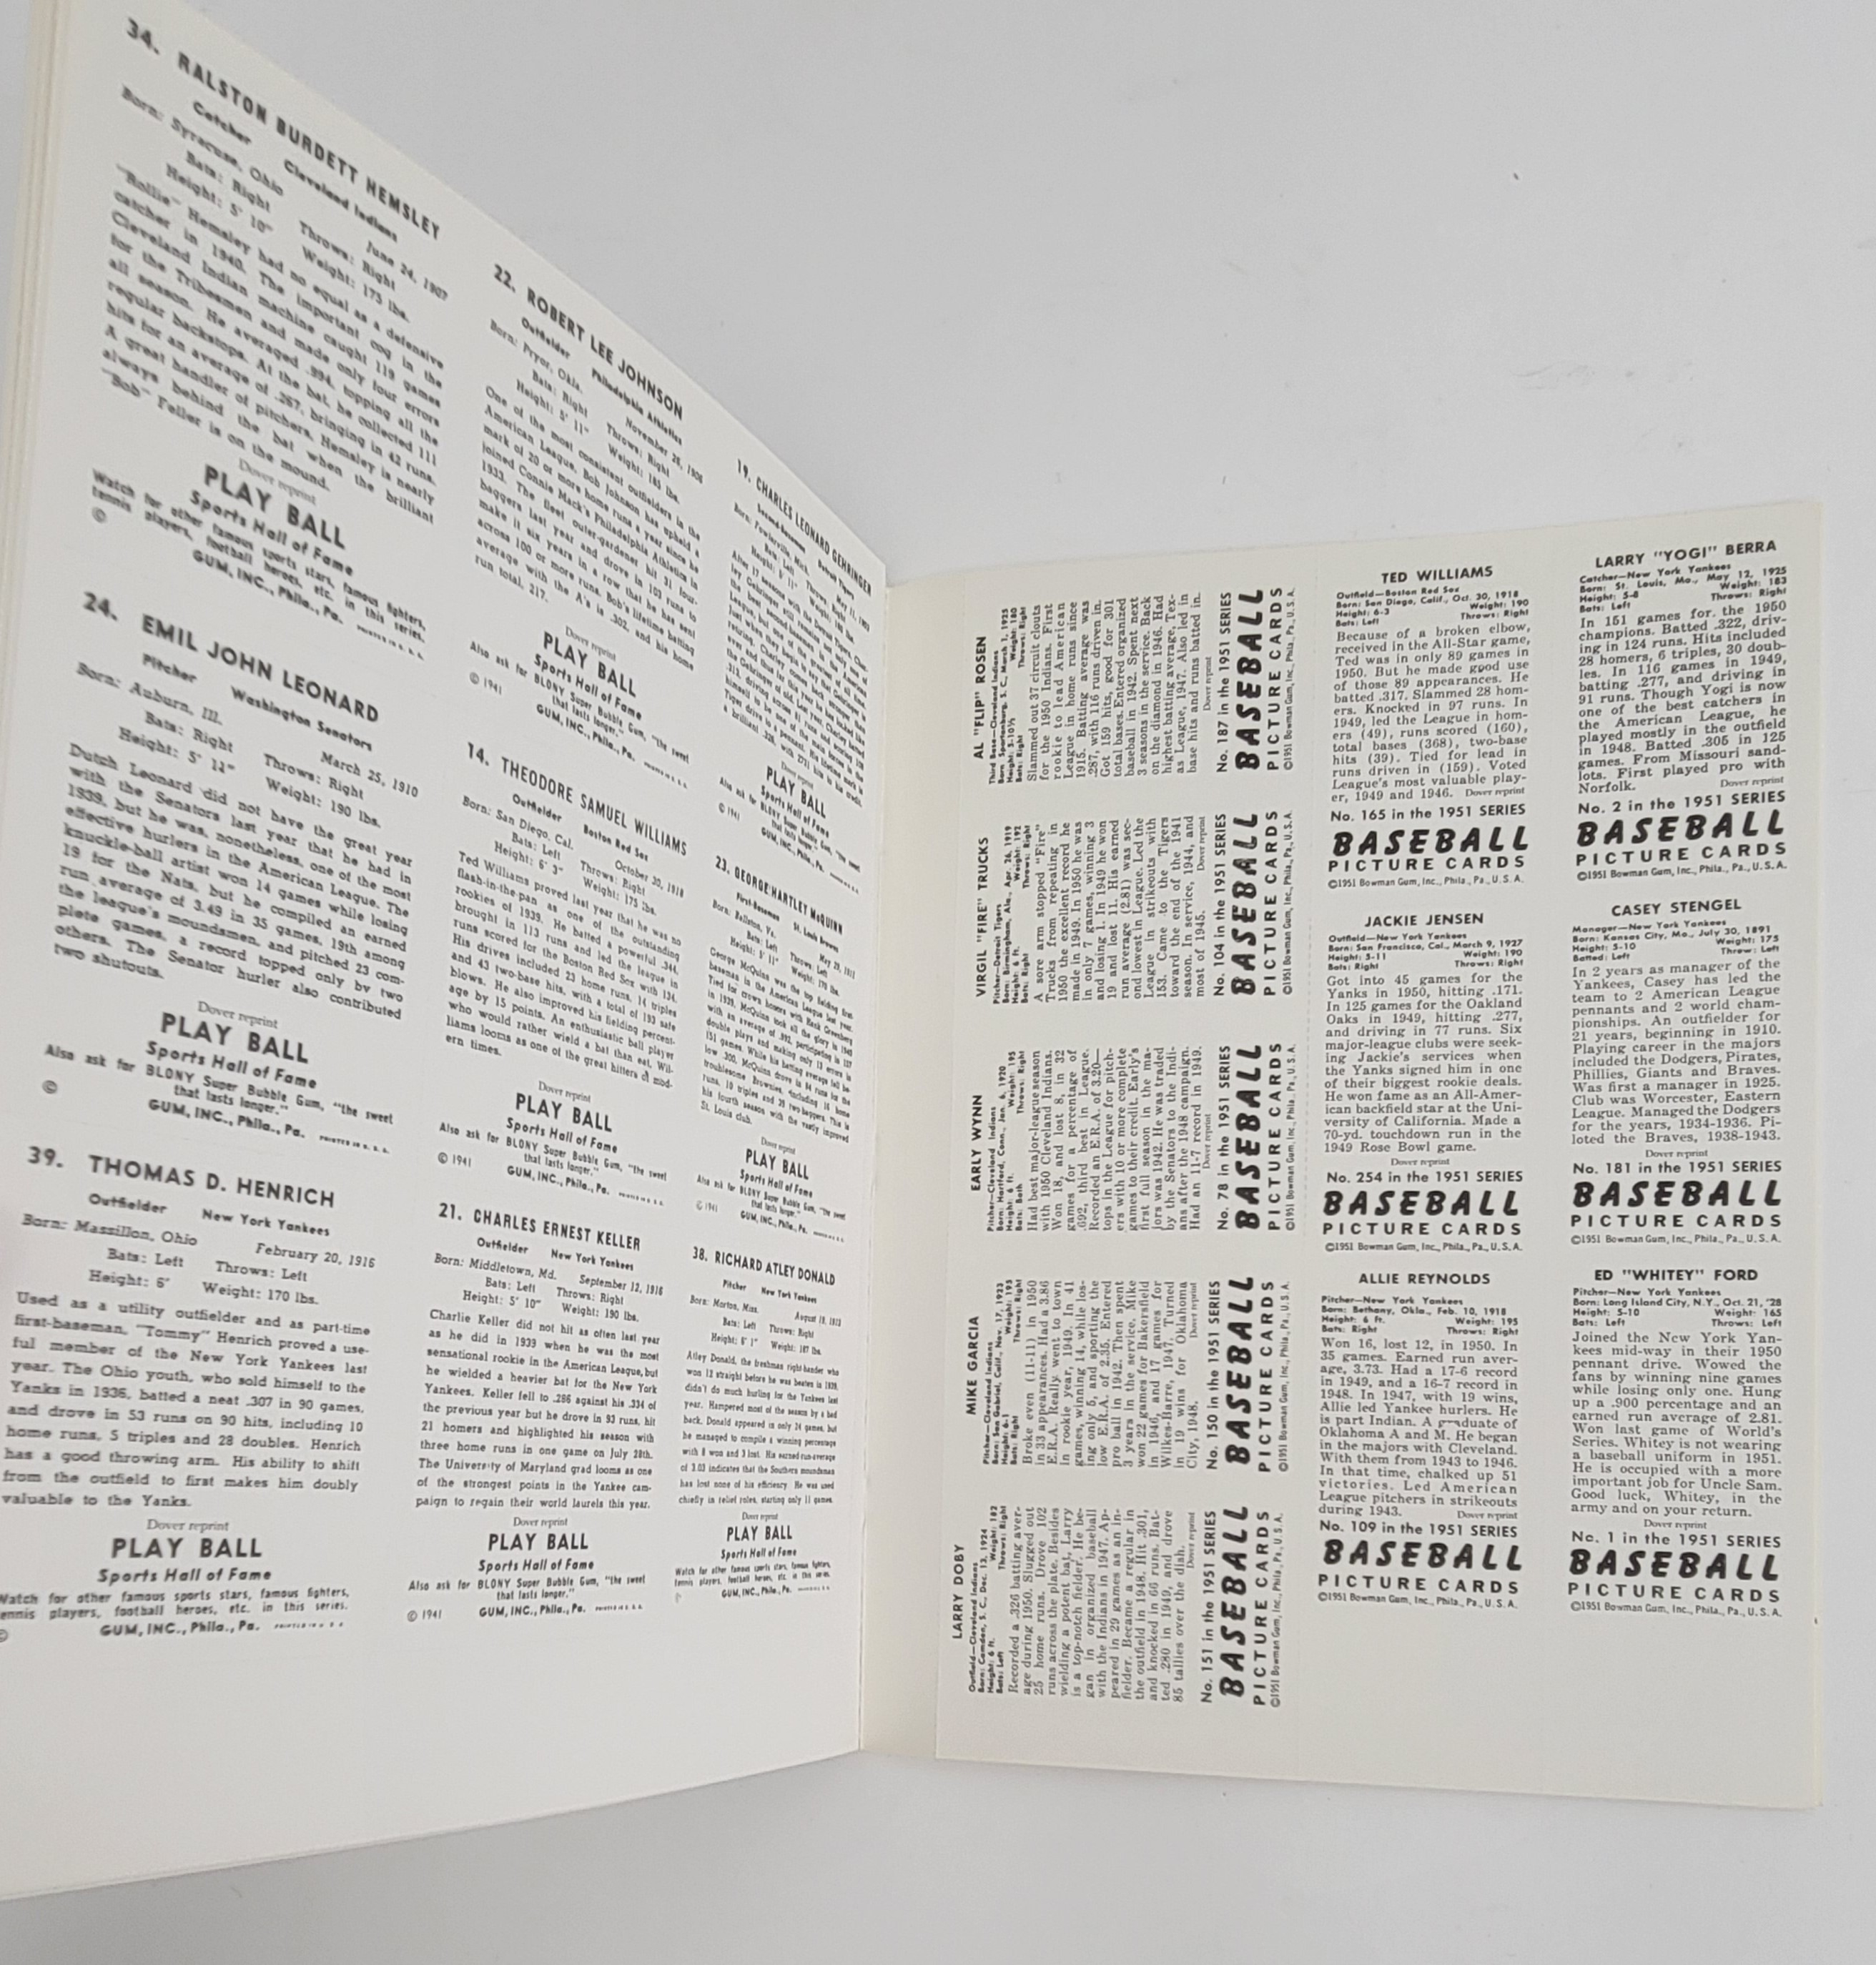 34. RALSTON BURDETT HEMSLEY
Catcher Cleveland Indians
Born: Syracuse, Ohio June 24, 1907
Bats: Right Throws: Right
Height: 5' 10" Weight: 175 lbs.
"Rollie" Hemsley had no equal as a defensive
catcher in 1940. The important cog in the
Cleveland Indian machine caught 119 games
for the Tribesmen and made only four errors
all season. He averaged .994, topping all the
regular backstops. At the bat, he collected 111
hits for an average of .267, bringing in 42 runs.
A great handler of pitchers, Hemsley is nearly
always behind the bat when the brilliant
"Bob" Feller is on the mound.
Dover reprint
PLAY BALL
Sports Hall of Fame
Watch for other famous sports stars, famous fighters,
tennis players, football heroes, etc. in this series.
© GUM, INC., Phila., Pa. PRINTED IN U.S.A.
24. EMIL JOHN LEONARD
Pitcher Washington Senators
Born: Auburn, Ill. March 25, 1910
Bats: Right Throws: Right
Height: 5' 11" Weight: 190 lbs.
Dutch Leonard did not have the great year
with the Senators last year that he had in
1939, but he was, nonetheless, one of the most
effective hurlers in the American League. The
knuckle-ball artist won 14 games while losing
19 for the Nats, but he compiled an earned
run average of 3.49 in 35 games, 19th among
the league's moundsmen, and pitched 23 com-
plete games, a record topped only by two
others. The Senator hurler also contributed
two shutouts.
Dover reprint
PLAY BALL
Sports Hall of Fame
Also ask for BLONY Super Bubble Gum, "the sweet
that lasts longer."
© GUM, INC., Phila., Pa. PRINTED IN U.S.A.
39. THOMAS D. HENRICH
Outfielder New York Yankees
Born: Massillon, Ohio February 20, 1916
Bats: Left Throws: Left
Height: 6' Weight: 170 lbs.
Used as a utility outfielder and as part-time
first-baseman, "Tommy" Henrich proved a use-
ful member of the New York Yankees last
year. The Ohio youth, who sold himself to the
Yanks in 1936, batted a neat .307 in 90 games,
and drove in 53 runs on 90 hits, including 10
home runs, 5 triples and 28 doubles. Henrich
has a good throwing arm. His ability to shift
from the outfield to first makes him doubly
valuable to the Yanks.
Dover reprint
PLAY BALL
Sports Hall of Fame
Watch for other famous sports stars, famous fighters,
tennis players, football heroes, etc. in this series.
GUM, INC., Phila., Pa. PRINTED IN U.S.A.
22. ROBERT LEE JOHNSON
Outfielder Philadelphia Athletics
Born: Pryor, Okla. November 26, 1906
Bats: Right Throws: Right
Height: 5' 11" Weight: 185 lbs.
One of the most consistent outfielders in the
American League, Bob Johnson has upheld a
mark of 20 or more home runs a year since he
joined Connie Mack's Philadelphia Athletics in
1933. The fleet outer-gardener hit 31 four-
baggers last year and drove in 103 runs to
make it six years in a row that he has sent
across 100 or more runs. Bob's lifetime batting
average with the A's is .302, and his home
run total, 217.
Dover reprint
PLAY BALL
Sports Hall of Fame
Also ask for BLONY Super Bubble Gum, "the sweet
that lasts longer."
© 1941 GUM, INC., Phila., Pa.
14. THEODORE SAMUEL WILLIAMS
Outfielder Boston Red Sox
Born: San Diego, Cal. October 30, 1918
Bats: Left Throws: Right
Height: 6' 3" Weight: 175 lbs.
Ted Williams proved last year that he was no
flash-in-the-pan as one of the outstanding
rookies of 1939. He batted a powerful .344,
brought in 113 runs and led the league in
runs scored for the Boston Red Sox with 134.
His drives included 23 home runs, 14 triples
and 43 two-base hits, with a total of 193 safe
blows. He also improved his fielding percent-
age by 15 points. An enthusiastic ball player
who would rather wield a bat than eat, Wil-
liams looms as one of the great hitters of mod-
ern times.
Dover reprint
PLAY BALL
Sports Hall of Fame
Also ask for BLONY Super Bubble Gum, "the sweet
that lasts longer."
© 1941 GUM, INC., Phila., Pa.
21. CHARLES ERNEST KELLER
Outfielder New York Yankees
Born: Middletown, Md. September 12, 1916
Bats: Left Throws: Right
Height: 5' 10" Weight: 190 lbs.
Charlie Keller did not hit as often last year
as he did in 1939 when he was the most
sensational rookie in the American League, but
he wielded a heavier bat for the New York
Yankees. Keller fell to .286 against his .334 of
the previous year but he drove in 93 runs, hit
21 homers and highlighted his season with
three home runs in one game on July 28th.
The University of Maryland grad looms as one
of the strongest points in the Yankee cam-
paign to regain their world laurels this year.
Dover reprint
PLAY BALL
Sports Hall of Fame
Also ask for BLONY Super Bubble Gum, "the sweet
that lasts longer."
© 1941 GUM, INC., Phila., Pa. PRINTED IN U.S.A.
19. CHARLES LEONARD GEHRINGER
Second-Baseman Detroit Tigers
Born: Fowlerville, Mich. May 11, 1903
Bats: Left Throws: Right
Height: 5' 11"
After 17 seasons with the Detroit Tigers, Char-
Dover reprint
PLAY BALL
Sports Hall of Fame
Also ask for BLONY Super Bubble Gum, "the sweet
that lasts longer."
© 1941 GUM, INC., Phila., Pa.
23. GEORGE HARTLEY McQUINN
First-Baseman St. Louis Browns
Born: Ballston, Va. May 29, 1911
Bats: Left Throws: Left
Height: 5' 11" Weight: 170 lbs.
George McQuinn was the top fielding first
baseman in the American League last year.
Tied for crown honors with Hank Greenberg
in 1939, McQuinn took all the glory in 1940
with an average of .992, participating in 157
double plays and making only 13 errors in
151 games. While his batting average fell be-
low .300, McQuinn drove in 84 runs for the
troublesome Brownies, including 16 home
runs, 10 triples and 39 two-baggers. This is
his fourth season with the vastly improved
St. Louis club.
Dover reprint
PLAY BALL
Sports Hall of Fame
Also ask for BLONY Super Bubble Gum, "the sweet
that lasts longer."
© 1941 GUM, INC., Phila., Pa.
38. RICHARD ATLEY DONALD
Pitcher New York Yankees
Born: Morton, Miss. August 19, 1913
Bats: Left Throws: Right
Height: 6' 1" Weight: 187 lbs.
Atley Donald, the freshman right-hander who
won 12 straight before he was beaten in 1939,
didn't do much hurling for the Yankees last
year. Hampered most of the season by a bad
back, Donald appeared in only 24 games, but
he managed to compile a winning percentage
with 8 won and 3 lost. His earned run average
of 3.03 indicates that the Southern moundsman
has lost none of his efficiency. He was used
chiefly in relief roles, starting only 11 games.
Dover reprint
PLAY BALL
Sports Hall of Fame
Watch for other famous sports stars, famous fighters,
tennis players, football heroes, etc. in this series.
GUM, INC., Phila., Pa.
AL "FLIP" ROSEN
Third Base—Cleveland Indians
Born Spartanburg, S. C., March 1, 1925
Height: 5-10½ Weight: 180
Bats: Right Throws: Right
Slammed out 37 circuit clouts
for the 1950 Indians. First
rookie to lead American
League in home runs since
1915. Batting average was
.287, with 116 runs driven in.
Got 159 hits, good for 301
total bases. Entered organized
baseball in 1942. Spent next
3 seasons in the service. Back
on the diamond in 1946. Had
highest batting average, Tex-
as League, 1947. Also led in
base hits and runs batted in.
Dover reprint
No. 187 in the 1951 SERIES
BASEBALL
PICTURE CARDS
©1951 Bowman Gum, Inc., Phila., Pa., U. S. A.
VIRGIL "FIRE" TRUCKS
Pitcher—Detroit Tigers
Born: Birmingham, Ala., Apr. 26, 1919
Height: 6 ft. Weight: 192
Bats: Right Throws: Right
A sore arm stopped "Fire"
Trucks from repeating in
1950 the excellent record he
made in 1949. In 1950 he was
in only 7 games, winning 3
and losing 1. In 1949 he won
19 and lost 11. His earned
run average (2.81) was sec-
ond lowest in League. Led the
League in strikeouts with
153. Came to the Tigers
toward the end of the 1941
season. In service, 1944, and
most of 1945. Dover reprint
No. 104 in the 1951 SERIES
BASEBALL
PICTURE CARDS
©1951 Bowman Gum, Inc., Phila., Pa., U. S. A.
EARLY WYNN
Pitcher—Cleveland Indians
Born: Hartford, Conn., Jan. 6, 1920
Height: 6 ft. Weight: 195
Bats: Both Throws: Right
Had best major-league season
with 1950 Cleveland Indians.
Won 18, and lost 8, in 32
games for a percentage of
.692, third best in League.
Recorded an E.R.A. of 3.20—
tops in the League for pitch-
ers with 10 or more complete
games to their credit. Early's
first full season in the ma-
jors was 1942. He was traded
by the Senators to the Indi-
ans after the 1948 campaign.
Had an 11-7 record in 1949.
Dover reprint
No. 78 in the 1951 SERIES
BASEBALL
PICTURE CARDS
©1951 Bowman Gum, Inc., Phila., Pa., U. S. A.
MIKE GARCIA
Pitcher—Cleveland Indians
Born: San Gabriel, Calif., Nov. 17, 1923
Height: 6-1 Weight: 195
Bats: Right Throws: Right
Broke even (11-11) in 1950
in 33 appearances. Had a 3.86
E.R.A. Really went to town
in rookie year, 1949. In 41
games, winning 14, while los-
ing only 5, and sporting the
low E.R.A. of 2.35. Entered
pro ball in 1942. Then spent
3 years in the service. Mike
won 22 games for Bakersfield
in 1946, and 17 games for
Wilkes-Barre, 1947. Turned
in 19 wins for Oklahoma
City, 1948. Dover reprint
No. 150 in the 1951 SERIES
BASEBALL
PICTURE CARDS
©1951 Bowman Gum, Inc., Phila., Pa., U. S. A.
LARRY DOBY
Outfield—Cleveland Indians
Born: Camden, S. C., Dec. 13, 1924
Height: 6 ft. Weight: 182
Bats: Left Throws: Right
Recorded a .326 batting aver-
age during 1950. Slugged out
25 home runs. Drove 102
runs across the plate. Besides
wielding a potent bat, Larry
is a top-notch fielder. He be-
gan in organized baseball
with the Indians in 1947. Ap-
peared in 29 games as an in-
fielder. Became a regular in
the outfield in 1948. Hit .301,
and knocked in 66 runs. Bat-
ted .280 in 1949, and drove
85 tallies over the dish.
Dover reprint
No. 151 in the 1951 SERIES
BASEBALL
PICTURE CARDS
©1951 Bowman Gum, Inc., Phila., Pa., U. S. A.
TED WILLIAMS
Outfield—Boston Red Sox
Born: San Diego, Calif., Oct. 30, 1918
Height: 6-3 Weight: 190
Bats: Left Throws: Right
Because of a broken elbow,
received in the All-Star game,
Ted was in only 89 games in
1950. But he made good use
of those 89 appearances. He
batted .317. Slammed 28 hom-
ers. Knocked in 97 runs. In
1949, led the League in hom-
ers (49), runs scored (160),
total bases (368), two-base
hits (39). Tied for lead in
runs driven in (159). Voted
League's most valuable play-
er, 1949 and 1946. Dover reprint
No. 165 in the 1951 SERIES
BASEBALL
PICTURE CARDS
©1951 Bowman Gum, Inc., Phila., Pa., U. S. A.
JACKIE JENSEN
Outfield—New York Yankees
Born: San Francisco, Cal., March 9, 1927
Height: 5-11 Weight: 190
Bats: Right Throws: Right
Got into 45 games for the
Yanks in 1950, hitting .171.
In 125 games for the Oakland
Oaks in 1949, hitting .277,
and driving in 77 runs. Six
major-league clubs were seek-
ing Jackie's services when
the Yanks signed him in one
of their biggest rookie deals.
He won fame as an All-Amer-
ican backfield star at the Uni-
versity of California. Made a
70-yd. touchdown run in the
1949 Rose Bowl game.
Dover reprint
No. 254 in the 1951 SERIES
BASEBALL
PICTURE CARDS
©1951 Bowman Gum, Inc., Phila., Pa., U. S. A.
ALLIE REYNOLDS
Pitcher—New York Yankees
Born: Bethany, Okla., Feb. 10, 1918
Height: 6 ft. Weight: 195
Bats: Right Throws: Right
Won 16, lost 12, in 1950. In
35 games. Earned run aver-
age, 3.73. Had a 17-6 record
in 1949, and a 16-7 record in
1948. In 1947, with 19 wins,
Allie led Yankee hurlers. He
is part Indian. A graduate of
Oklahoma A and M. He began
in the majors with Cleveland.
With them from 1943 to 1946.
In that time, chalked up 51
victories. Led American
League pitchers in strikeouts
during 1943. Dover reprint
No. 109 in the 1951 SERIES
BASEBALL
PICTURE CARDS
©1951 Bowman Gum, Inc., Phila., Pa., U. S. A.
LARRY "YOGI" BERRA
Catcher—New York Yankees
Born: St. Louis, Mo., May 12, 1925
Height: 5-8 Weight: 183
Bats: Left Throws: Right
In 151 games for the 1950
champions. Batted .322, driv-
ing in 124 runs. Hits included
28 homers, 6 triples, 30 doub-
les. In 116 games in 1949,
batting .277, and driving in
91 runs. Though Yogi is now
one of the best catchers in
the American League, he
played mostly in the outfield
in 1948. Batted .305 in 125
games. From Missouri sand-
lots. First played pro with
Norfolk. Dover reprint
No. 2 in the 1951 SERIES
BASEBALL
PICTURE CARDS
©1951 Bowman Gum, Inc., Phila., Pa., U.S.A.
CASEY STENGEL
Manager—New York Yankees
Born: Kansas City, Mo., July 30, 1891
Height: 5-10 Weight: 175
Batted: Left Threw: Left
In 2 years as manager of the
Yankees, Casey has led the
team to 2 American League
pennants and 2 world cham-
pionships. An outfielder for
21 years, beginning in 1910.
Playing career in the majors
included the Dodgers, Pirates,
Phillies, Giants and Braves.
Was first a manager in 1925.
Club was Worcester, Eastern
League. Managed the Dodgers
for the years, 1934-1936. Pi-
loted the Braves, 1938-1943.
Dover reprint
No. 181 in the 1951 SERIES
BASEBALL
PICTURE CARDS
©1951 Bowman Gum, Inc., Phila., Pa., U. S. A.
ED "WHITEY" FORD
Pitcher—New York Yankees
Born: Long Island City, N. Y., Oct. 21, '28
Height: 5-10 Weight: 165
Bats: Left Throws: Left
Joined the New York Yan-
kees mid-way in their 1950
pennant drive. Wowed the
fans by winning nine games
while losing only one. Hung
up a .900 percentage and an
earned run average of 2.81.
Won last game of World's
Series. Whitey is not wearing
a baseball uniform in 1951.
He is occupied with a more
important job for Uncle Sam.
Good luck, Whitey, in the
army and on your return.
Dover reprint
No. 1 in the 1951 SERIES
BASEBALL
PICTURE CARDS
©1951 Bowman Gum, Inc., Phila., Pa., U. S. A.